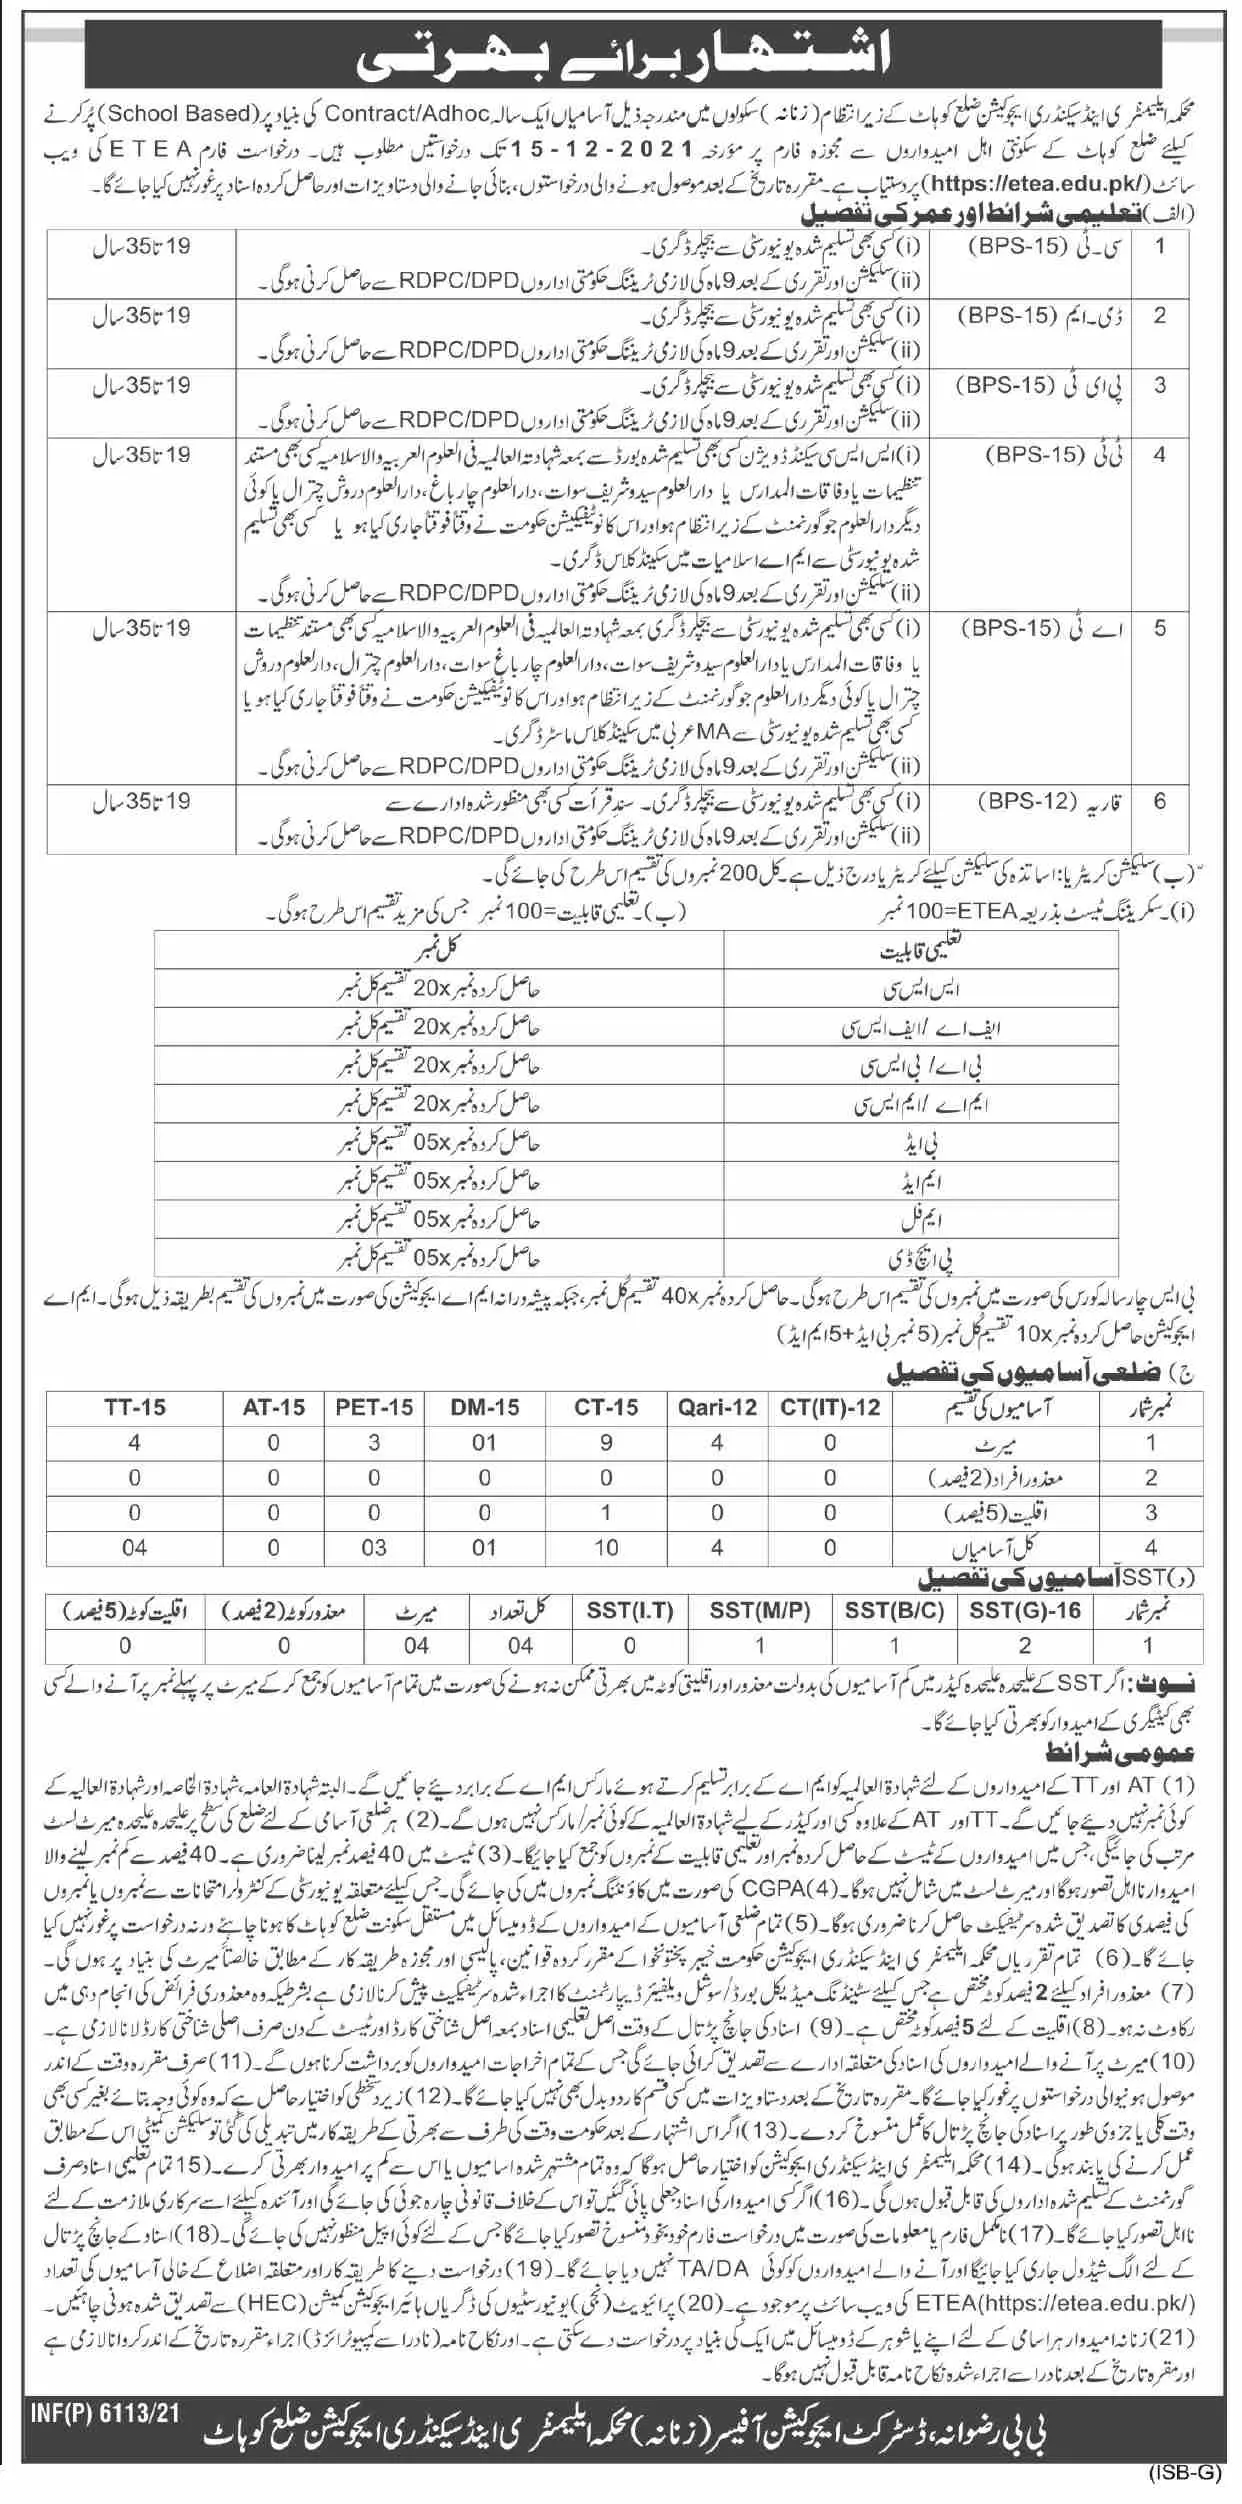 اشتہار برائے بھرتی
محکمہ ایلیمنٹری اینڈ سیکنڈری ایجوکیشن ضلع کوہاٹ کے زیر انتظام (زنانہ) سکولوں میں مندرجہ ذیل آسامیاں ایک سالہ Contract/Adhoc کی بنیاد پر (School Based) پُر کرنے
کیلئے ضلع کوہاٹ کے سکونتی اہل امیدواروں سے مجوزہ فارم پر مؤرخہ 15-12-2021 تک درخواستیں مطلوب ہیں۔ درخواست فارم ETEA کی ویب
سائٹ (https://etea.edu.pk/) پر دستیاب ہے۔ مقررہ تاریخ کے بعد موصول ہونے والی درخواستوں، بنائی جانے والی دستاویزات اور حاصل کردہ اسناد پر غور نہیں کیا جائے گا۔
(الف) تعلیمی شرائط اور عمر کی تفصیل
1 سی۔ٹی (BPS-15) (i) کسی بھی تسلیم شدہ یونیورسٹی سے بیچلر ڈگری۔ 19 تا 35 سال
(ii) سلیکشن اور تقرری کے بعد 9 ماہ کی لازمی ٹریننگ حکومتی اداروں RDPC/DPD سے حاصل کرنی ہوگی۔
2 ڈی۔ایم (BPS-15) (i) کسی بھی تسلیم شدہ یونیورسٹی سے بیچلر ڈگری۔ 19 تا 35 سال
(ii) سلیکشن اور تقرری کے بعد 9 ماہ کی لازمی ٹریننگ حکومتی اداروں RDPC/DPD سے حاصل کرنی ہوگی۔
3 پی ای ٹی (BPS-15) (i) کسی بھی تسلیم شدہ یونیورسٹی سے بیچلر ڈگری۔ 19 تا 35 سال
(ii) سلیکشن اور تقرری کے بعد 9 ماہ کی لازمی ٹریننگ حکومتی اداروں RDPC/DPD سے حاصل کرنی ہوگی۔
4 ٹی ٹی (BPS-15) (i) ایس ایس سی سیکنڈ ڈویژن کسی بھی تسلیم شدہ بورڈ سے بمعہ شہادتہ العالمیہ فی العلوم العربیہ والاسلامیہ کسی بھی مستند 19 تا 35 سال
تنظیمات یا وفاقات المدارس یا دارالعلوم سیدو شریف سوات، دارالعلوم چارباغ، دارالعلوم دروش چترال یا کوئی
دیگر دارالعلوم جو گورنمنٹ کے زیر انتظام ہو اور اس کا نوٹیفیکیشن حکومت نے وقتاً فوقتاً جاری کیا ہو یا کسی بھی تسلیم
شدہ یونیورسٹی سے ایم اے اسلامیات میں سیکنڈ کلاس ڈگری۔
(ii) سلیکشن اور تقرری کے بعد 9 ماہ کی لازمی ٹریننگ حکومتی اداروں RDPC/DPD سے حاصل کرنی ہوگی۔
5 اے ٹی (BPS-15) (i) کسی بھی تسلیم شدہ یونیورسٹی سے بیچلر ڈگری بمعہ شہادتہ العالمیہ فی العلوم العربیہ والاسلامیہ کسی بھی مستند تنظیمات 19 تا 35 سال
یا وفاقات المدارس یا دارالعلوم سیدو شریف سوات، دارالعلوم چارباغ سوات، دارالعلوم چترال، دارالعلوم دروش
چترال یا کوئی دیگر دارالعلوم جو گورنمنٹ کے زیر انتظام ہو اور اس کا نوٹیفیکیشن حکومت نے وقتاً فوقتاً جاری کیا ہو یا
کسی بھی تسلیم شدہ یونیورسٹی سے MA عربی میں سیکنڈ کلاس ماسٹر ڈگری۔
(ii) سلیکشن اور تقرری کے بعد 9 ماہ کی لازمی ٹریننگ حکومتی اداروں RDPC/DPD سے حاصل کرنی ہوگی۔
6 قاریہ (BPS-12) (i) کسی بھی تسلیم شدہ یونیورسٹی سے بیچلر ڈگری۔ سند قرأت کسی بھی منظور شدہ ادارے سے 19 تا 35 سال
(ii) سلیکشن اور تقرری کے بعد 9 ماہ کی لازمی ٹریننگ حکومتی اداروں RDPC/DPD سے حاصل کرنی ہوگی۔
(ب) سلیکشن کریٹریا: اساتذہ کی سلیکشن کیلئے کریٹریا درج ذیل ہے۔ کل 200 نمبروں کی تقسیم اس طرح کی جائے گی۔
(i)۔ سکریننگ ٹیسٹ بذریعہ ETEA=100 نمبر (ب)۔ تعلیمی قابلیت=100 نمبر جس کی مزید تقسیم اس طرح ہوگی۔
تعلیمی قابلیت کل نمبر
ایس ایس سی حاصل کردہ نمبر 20x تقسیم کل نمبر
ایف اے / ایف ایس سی حاصل کردہ نمبر 20x تقسیم کل نمبر
بی اے / بی ایس سی حاصل کردہ نمبر 20x تقسیم کل نمبر
ایم اے / ایم ایس سی حاصل کردہ نمبر 20x تقسیم کل نمبر
بی ایڈ حاصل کردہ نمبر 05x تقسیم کل نمبر
ایم ایڈ حاصل کردہ نمبر 05x تقسیم کل نمبر
ایم فل حاصل کردہ نمبر 05x تقسیم کل نمبر
پی ایچ ڈی حاصل کردہ نمبر 05x تقسیم کل نمبر
بی ایس چار سالہ کورس کی صورت میں نمبروں کی تقسیم اس طرح ہوگی۔ حاصل کردہ نمبر 40x تقسیم کُل نمبر، جبکہ پیشہ ورانہ ایم اے ایجوکیشن کی صورت میں نمبروں کی تقسیم بطریقہ ذیل ہوگی۔ ایم اے
ایجوکیشن حاصل کردہ نمبر 10x تقسیم کُل نمبر (5 نمبر بی ایڈ+5 ایم ایڈ)
ج) ضلعی آسامیوں کی تفصیل
نمبر شمار آسامیوں کی تقسیم CT(IT)-12 Qari-12 CT-15 DM-15 PET-15 AT-15 TT-15
1 میرٹ 0 4 9 01 3 0 4
2 معذور افراد (2 فیصد) 0 0 0 0 0 0 0
3 اقلیت (5 فیصد) 0 0 1 0 0 0 0
4 کل آسامیاں 0 4 10 01 03 0 04
(د) SST آسامیوں کی تفصیل
نمبر شمار SST(G)-16 SST(B/C) SST(M/P) SST(I.T) کل تعداد میرٹ معذور کوٹہ (2 فیصد) اقلیت کوٹہ (5 فیصد)
1 2 1 1 0 04 04 0 0
نوٹ: اگر SST کے علیحدہ علیحدہ کیڈر میں کم آسامیوں کی بدولت معذور اور اقلیتی کوٹہ میں بھرتی ممکن نہ ہونے کی صورت میں تمام آسامیوں کو جمع کر کے میرٹ پر پہلے نمبر پر آنے والے کسی
بھی کیٹیگری کے امیدوار کو بھرتی کیا جائے گا۔
عمومی شرائط
(1) AT اور TT کے امیدواروں کے لئے شہادۃ العالمیہ کو ایم اے کے برابر تسلیم کرتے ہوئے مارکس ایم اے کے برابر دیئے جائیں گے۔ البتہ شہادۃ العامہ، شہادۃ الخاصہ اور شہادۃ العالیہ کے
کوئی نمبر نہیں دیئے جائیں گے۔ TT اور AT کے علاوہ کسی اور کیڈر کے لیے شہادۃ العالمیہ کے کوئی نمبر/مارکس نہیں ہوں گے۔ (2) ہر ضلعی آسامی کے لئے ضلع کی سطح پر علیحدہ علیحدہ میرٹ لسٹ
مرتب کی جائیگی، جس میں امیدواروں کے ٹیسٹ کے حاصل کردہ نمبر اور تعلیمی قابلیت کے نمبروں کو جمع کیا جائیگا۔ (3) ٹیسٹ میں 40 فیصد نمبر لینا ضروری ہے۔ 40 فیصد سے کم نمبر لینے والا
امیدوار نااہل تصور ہوگا اور میرٹ لسٹ میں شامل نہیں ہوگا۔ (4) CGPA کی صورت میں کاؤنٹنگ نمبروں میں کی جائے گی۔ جس کیلئے متعلقہ یونیورسٹی کے کنٹرولر امتحانات سے نمبروں یا نمبروں
کی فیصدی کا تصدیق شدہ سرٹیفکیٹ حاصل کرنا ضروری ہوگا۔ (5) تمام ضلعی آسامیوں کے امیدواروں کے ڈومیسائل میں مستقل سکونت ضلع کوہاٹ کا ہونا چاہئے ورنہ درخواست پر غور نہیں کیا
جائے گا۔ (6) تمام تقرریاں محکمہ ایلیمنٹری اینڈ سیکنڈری ایجوکیشن حکومت خیبر پختونخوا کے مقرر کردہ قوانین، پالیسی اور مجوزہ طریقہ کار کے مطابق خالصتاً میرٹ کی بنیاد پر ہوں گی۔
(7) معذور افراد کیلئے 2 فیصد کوٹہ مختص ہے جس کیلئے سٹینڈنگ میڈیکل بورڈ/سوشل ویلفیئر ڈیپارٹمنٹ کا اجراء شدہ سرٹیفکیٹ پیش کرنا لازمی ہے بشرطیکہ وہ معذوری فرائض کی انجام دہی میں
رکاوٹ نہ ہو۔ (8) اقلیت کے لئے 5 فیصد کوٹہ مختص ہے۔ (9) اسناد کی جانچ پڑتال کے وقت اصل تعلیمی اسناد بمعہ اصل شناختی کارڈ اور ٹیسٹ کے دن صرف اصلی شناختی کارڈ لانا لازمی ہے۔
(10) میرٹ پر آنے والے امیدواروں کی اسناد کی متعلقہ ادارے سے تصدیق کرائی جائے گی جس کے تمام اخراجات امیدواروں کو برداشت کرنا ہوں گے۔ (11) صرف مقررہ وقت کے اندر
موصول ہونیوالی درخواستوں پر غور کیا جائے گا۔ مقررہ تاریخ کے بعد دستاویزات میں کسی قسم کا ردوبدل بھی نہیں کیا جائے گا۔ (12) زیر دستخطی کو اختیار حاصل ہے کہ وہ کوئی وجہ بتائے بغیر کسی بھی
وقت کلی یا جزوی طور پر اسناد کی جانچ پڑتال کا عمل منسوخ کر دے۔ (13) اگر اس اشتہار کے بعد حکومت وقت کی طرف سے بھرتی کے طریقہ کار میں تبدیلی کی گئی تو سلیکشن کمیٹی اس کے مطابق
عمل کرنے کی پابند ہوگی۔ (14) محکمہ ایلیمنٹری اینڈ سیکنڈری ایجوکیشن کو اختیار حاصل ہوگا کہ وہ تمام مشتہر شدہ اسامیوں یا اس سے کم پر امیدوار بھرتی کرے۔ (15) تمام تعلیمی اسناد صرف
گورنمنٹ کے تسلیم شدہ اداروں کی قابل قبول ہوں گی۔ (16) اگر کسی امیدوار کی اسناد جعلی پائی گئیں تو اس کے خلاف قانونی چارہ جوئی کی جائے گی اور آئندہ کیلئے اسے سرکاری ملازمت کے لئے
نااہل تصور کیا جائے گا۔ (17) نامکمل فارم یا معلومات کی صورت میں درخواست فارم خود بخود منسوخ تصور کیا جائے گا جس کے لئے کوئی اپیل منظور نہیں کی جائے گی۔ (18) اسناد کے جانچ پڑتال
کے لئے الگ شیڈول جاری کیا جائیگا اور آنے والے امیدواروں کو کوئی TA/DA نہیں دیا جائے گا۔ (19) درخواست دینے کا طریقہ کار اور متعلقہ اضلاع کے خالی آسامیوں کی تعداد
ETEA(https://etea.edu.pk/) کی ویب سائٹ پر موجود ہے۔ (20) پرائیویٹ (نجی) یونیورسٹیوں کی ڈگریاں ہائیر ایجوکیشن کمیشن (HEC) سے تصدیق شدہ ہونی چاہئیں۔
(21) زنانہ امیدوار ہر اسامی کے لئے اپنے یا شوہر کے ڈومیسائل میں ایک کی بنیاد پر درخواست دے سکتی ہے۔ اور نکاح نامہ (نادرا سے کمپیوٹرائزڈ) اجراء مقررہ تاریخ کے اندر کروانا لازمی ہے
اور مقررہ تاریخ کے بعد نادرا سے اجراء شدہ نکاح نامہ قابل قبول نہیں ہوگا۔
بی بی رضوانہ، ڈسٹرکٹ ایجوکیشن آفیسر (زنانہ) محکمہ ایلیمنٹری اینڈ سیکنڈری ایجوکیشن ضلع کوہاٹ
INF(P) 6113/21
(ISB-G)